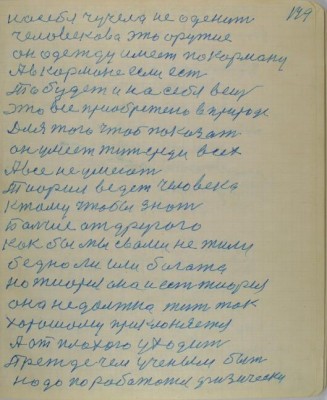 194
на себя чучела не оденит
человекова это оружие
он одежду имеет по карману
А в кармане если ест
То будет и на себя вещ
Это все приобретено в природе
Для того чтоб показат
он умеет жит среди всех
А все не умеют
Тиория ведет человека
к тому чтобы знат
Болше от другого
как бы мы с вами не жили
бедно ли или богата
но тиория она и ест тиория
она не должна жит так
хорошому приклоняется
А от плохого уходит
Прежде чем ученым быт
надо поработат физически